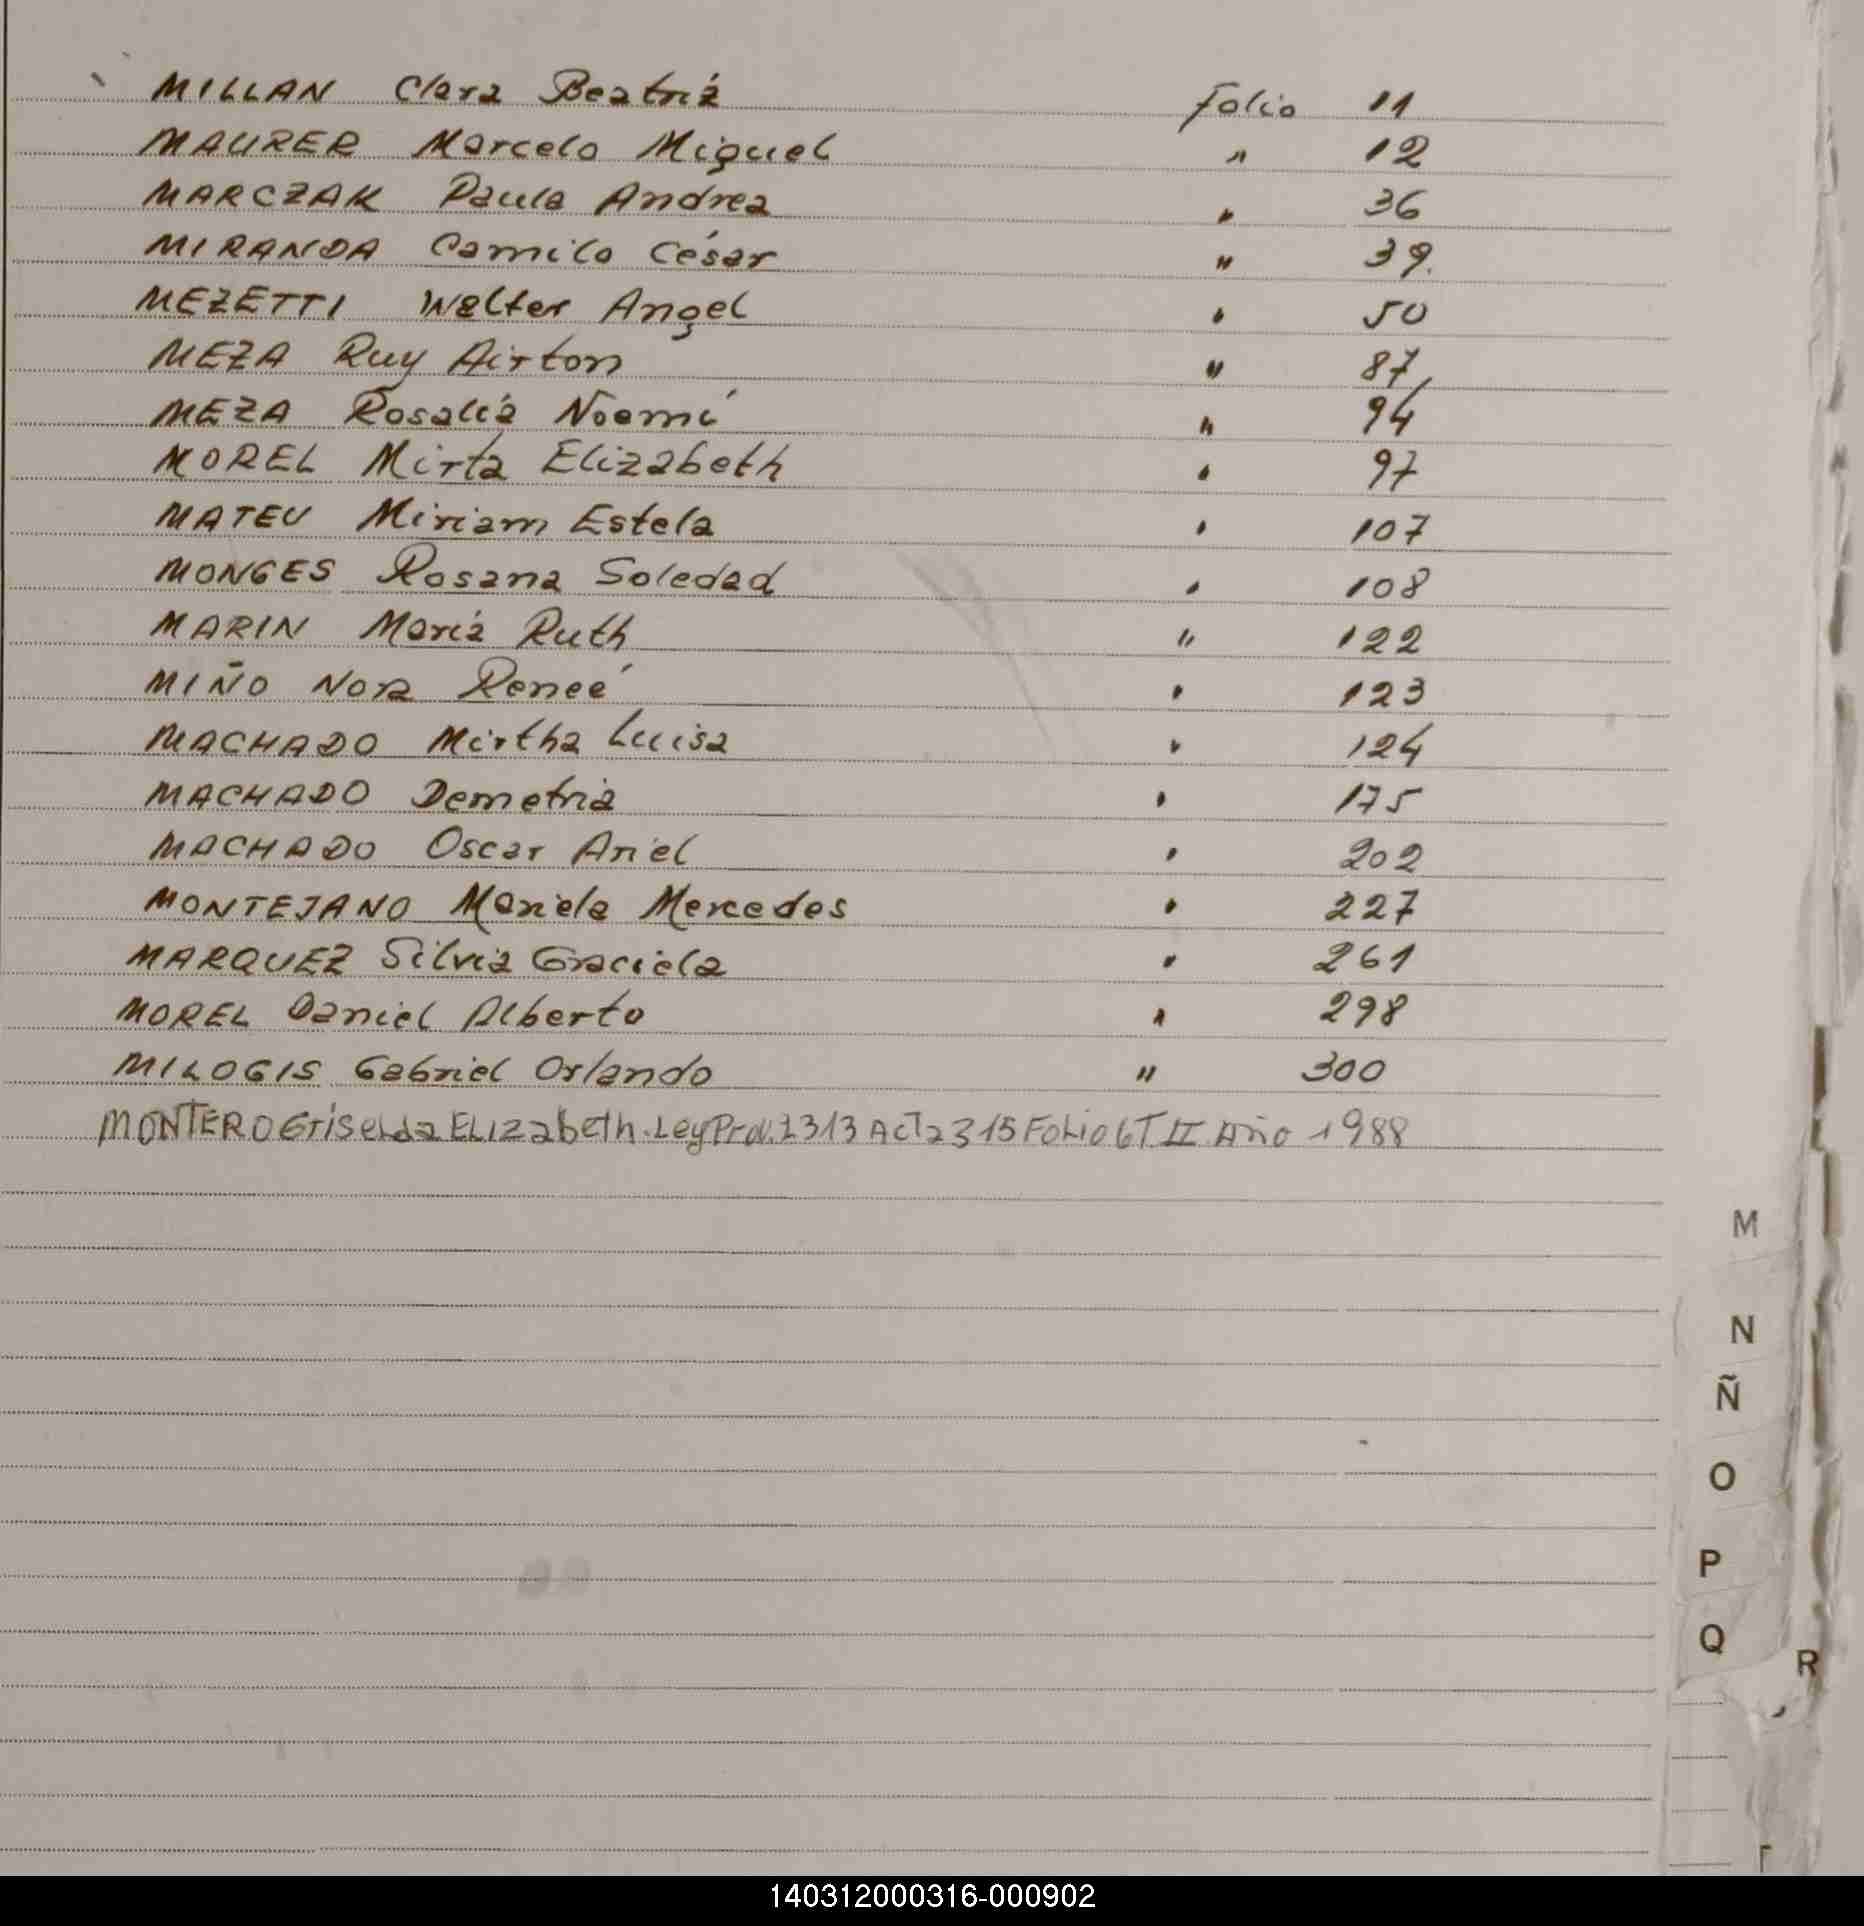 MILLAN Clara Beatriz Folio 11
MAURER Marcelo Miguel " 12
MARCZAK Paula Andrea " 36
MIRANDA Camilo César " 39.
MEZETTI Walter Angel " 50
MEZA Ruy Airton " 87
MEZA Rosalia Noemí " 94
MOREL Mirta Elizabeth " 97
MATEU Miriam Estela " 107
MONGES Rosana Soledad " 108
MARIN Maria Ruth " 122
MIÑO Nora Reneé " 123
MACHADO Mirtha Luisa " 124
MACHADO Demetria " 175
MACHADO Oscar Ariel " 202
MONTEJANO Mariela Mercedes " 227
MARQUEZ Silvia Graciela " 261
MOREL Daniel Alberto " 298
MILOGIS Gabriel Orlando " 300
MONTERO Griselda ELIZabeth. Ley Prov. 2313 Acta 315 Folio 6 T II Año 1988
M
N
Ñ
O
P
Q
R
140312000316-000902